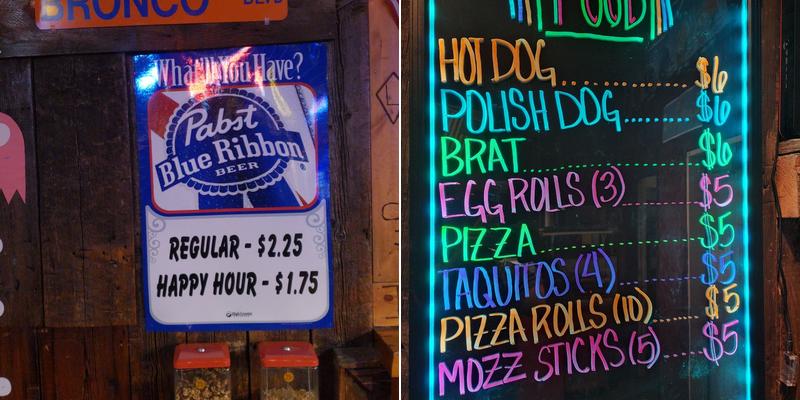 BRONCO BLVD
What'll You Have?
Pabst
Blue Ribbon
BEER
REGULAR - $2.25
HAPPY HOUR - $1.75
FOOD
HOT DOG.......... $6
POLISH DOG........ $6
BRAT.............. $6
EGG ROLLS (3)....... $5
PIZZA.............. $5
TAQUITOS (4)....... $5
PIZZA ROLLS (10)...... $5
MOZZ STICKS (5)..... $5